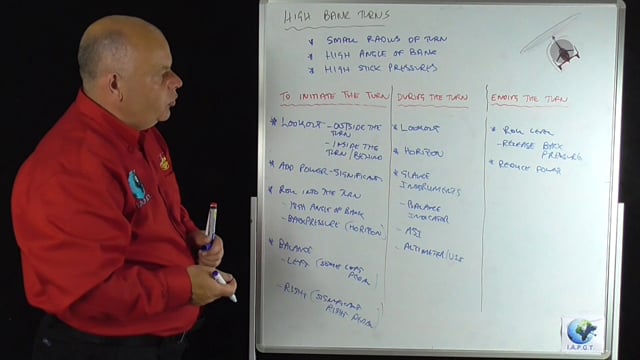 HIGH BANK TURNS
* SMALL RADIUS OF TURN
* HIGH ANGLE OF BANK
* HIGH STICK PRESSURES
TO INITIATE THE TURN
* LOOKOUT - OUTSIDE THE
TURN
- INSIDE THE
TURN/BEHIND
* ADD POWER - SIGNIFICANT
* ROLL INTO THE TURN
- HIGH ANGLE OF BANK
- BACKPRESSURE (HORIZON)
* BALANCE
- LEFT (SOME LEFT
PEDAL)
- RIGHT (SIGNIFICANT
RIGHT PEDAL)
DURING THE TURN
* LOOKOUT
* HORIZON
* GLANCE
INSTRUMENTS
- BALANCE
INDICATOR
- ASI
- ALTIMETER/VSI
ENDING THE TURN
* ROLL LEVEL
- RELEASE BACK
PRESSURE
* REDUCE POWER
I.A.F.G.T.